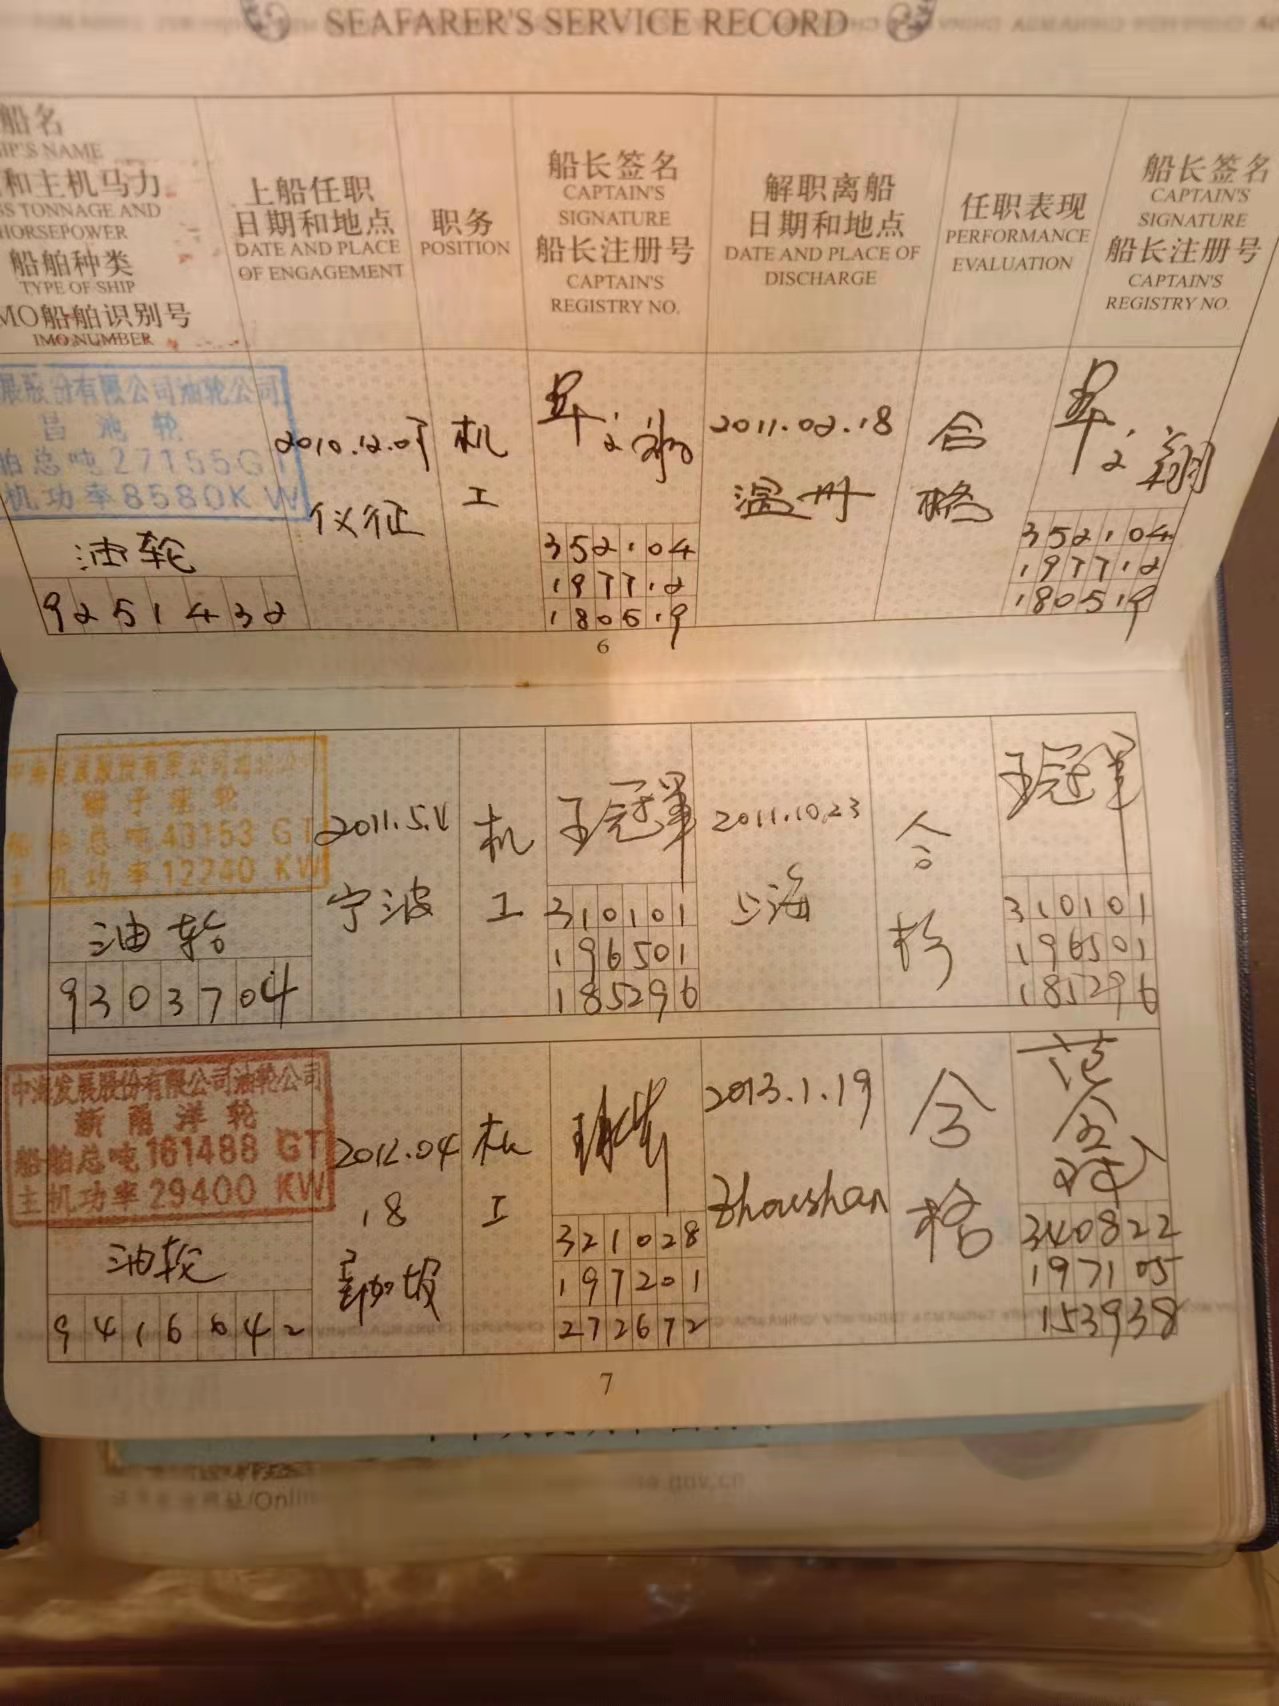 SEAFARER'S SERVICE RECORD
船名
IP'S NAME
和主机马力
SS TONNAGE AND
HORSEPOWER
船舶种类
TYPE OF SHIP
MO船舶识别号
IMO NUMBER
上船任职
日期和地点
DATE AND PLACE
OF ENGAGEMENT
职务
POSITION
船长签名
CAPTAIN'S
SIGNATURE
船长注册号
CAPTAIN'S
REGISTRY NO.
解职离船
日期和地点
DATE AND PLACE OF
DISCHARGE
任职表现
PERFORMANCE
EVALUATION
船长签名
CAPTAIN'S
SIGNATURE
船长注册号
CAPTAIN'S
REGISTRY NO.
展股份有限公司油轮公司
昌池轮
舶总吨27155GT
机功率8580KW
油轮
9251432
仪征
机
工
352104
197712
180519
2011.02.18
温州
合
格
352104
197712
180519
6
中海发展股份有限公司油轮公司
狮子座轮
船舶总吨43153 GT
主机功率12240 KW
油轮
9303704
宁波
机
工
王冠军
310101
196501
185296
2011.10.23
上海
合
格
王冠军
310101
196501
185296
中海发展股份有限公司油轮公司
船舶总吨161488 GT
主机功率29400 KW
油轮
9416642
2012.04
18
新加坡
机
工
321028
197201
272672
2013.1.19
Zhoushan
合
格
340822
197105
153938
7
/Onlin
.gov.cn